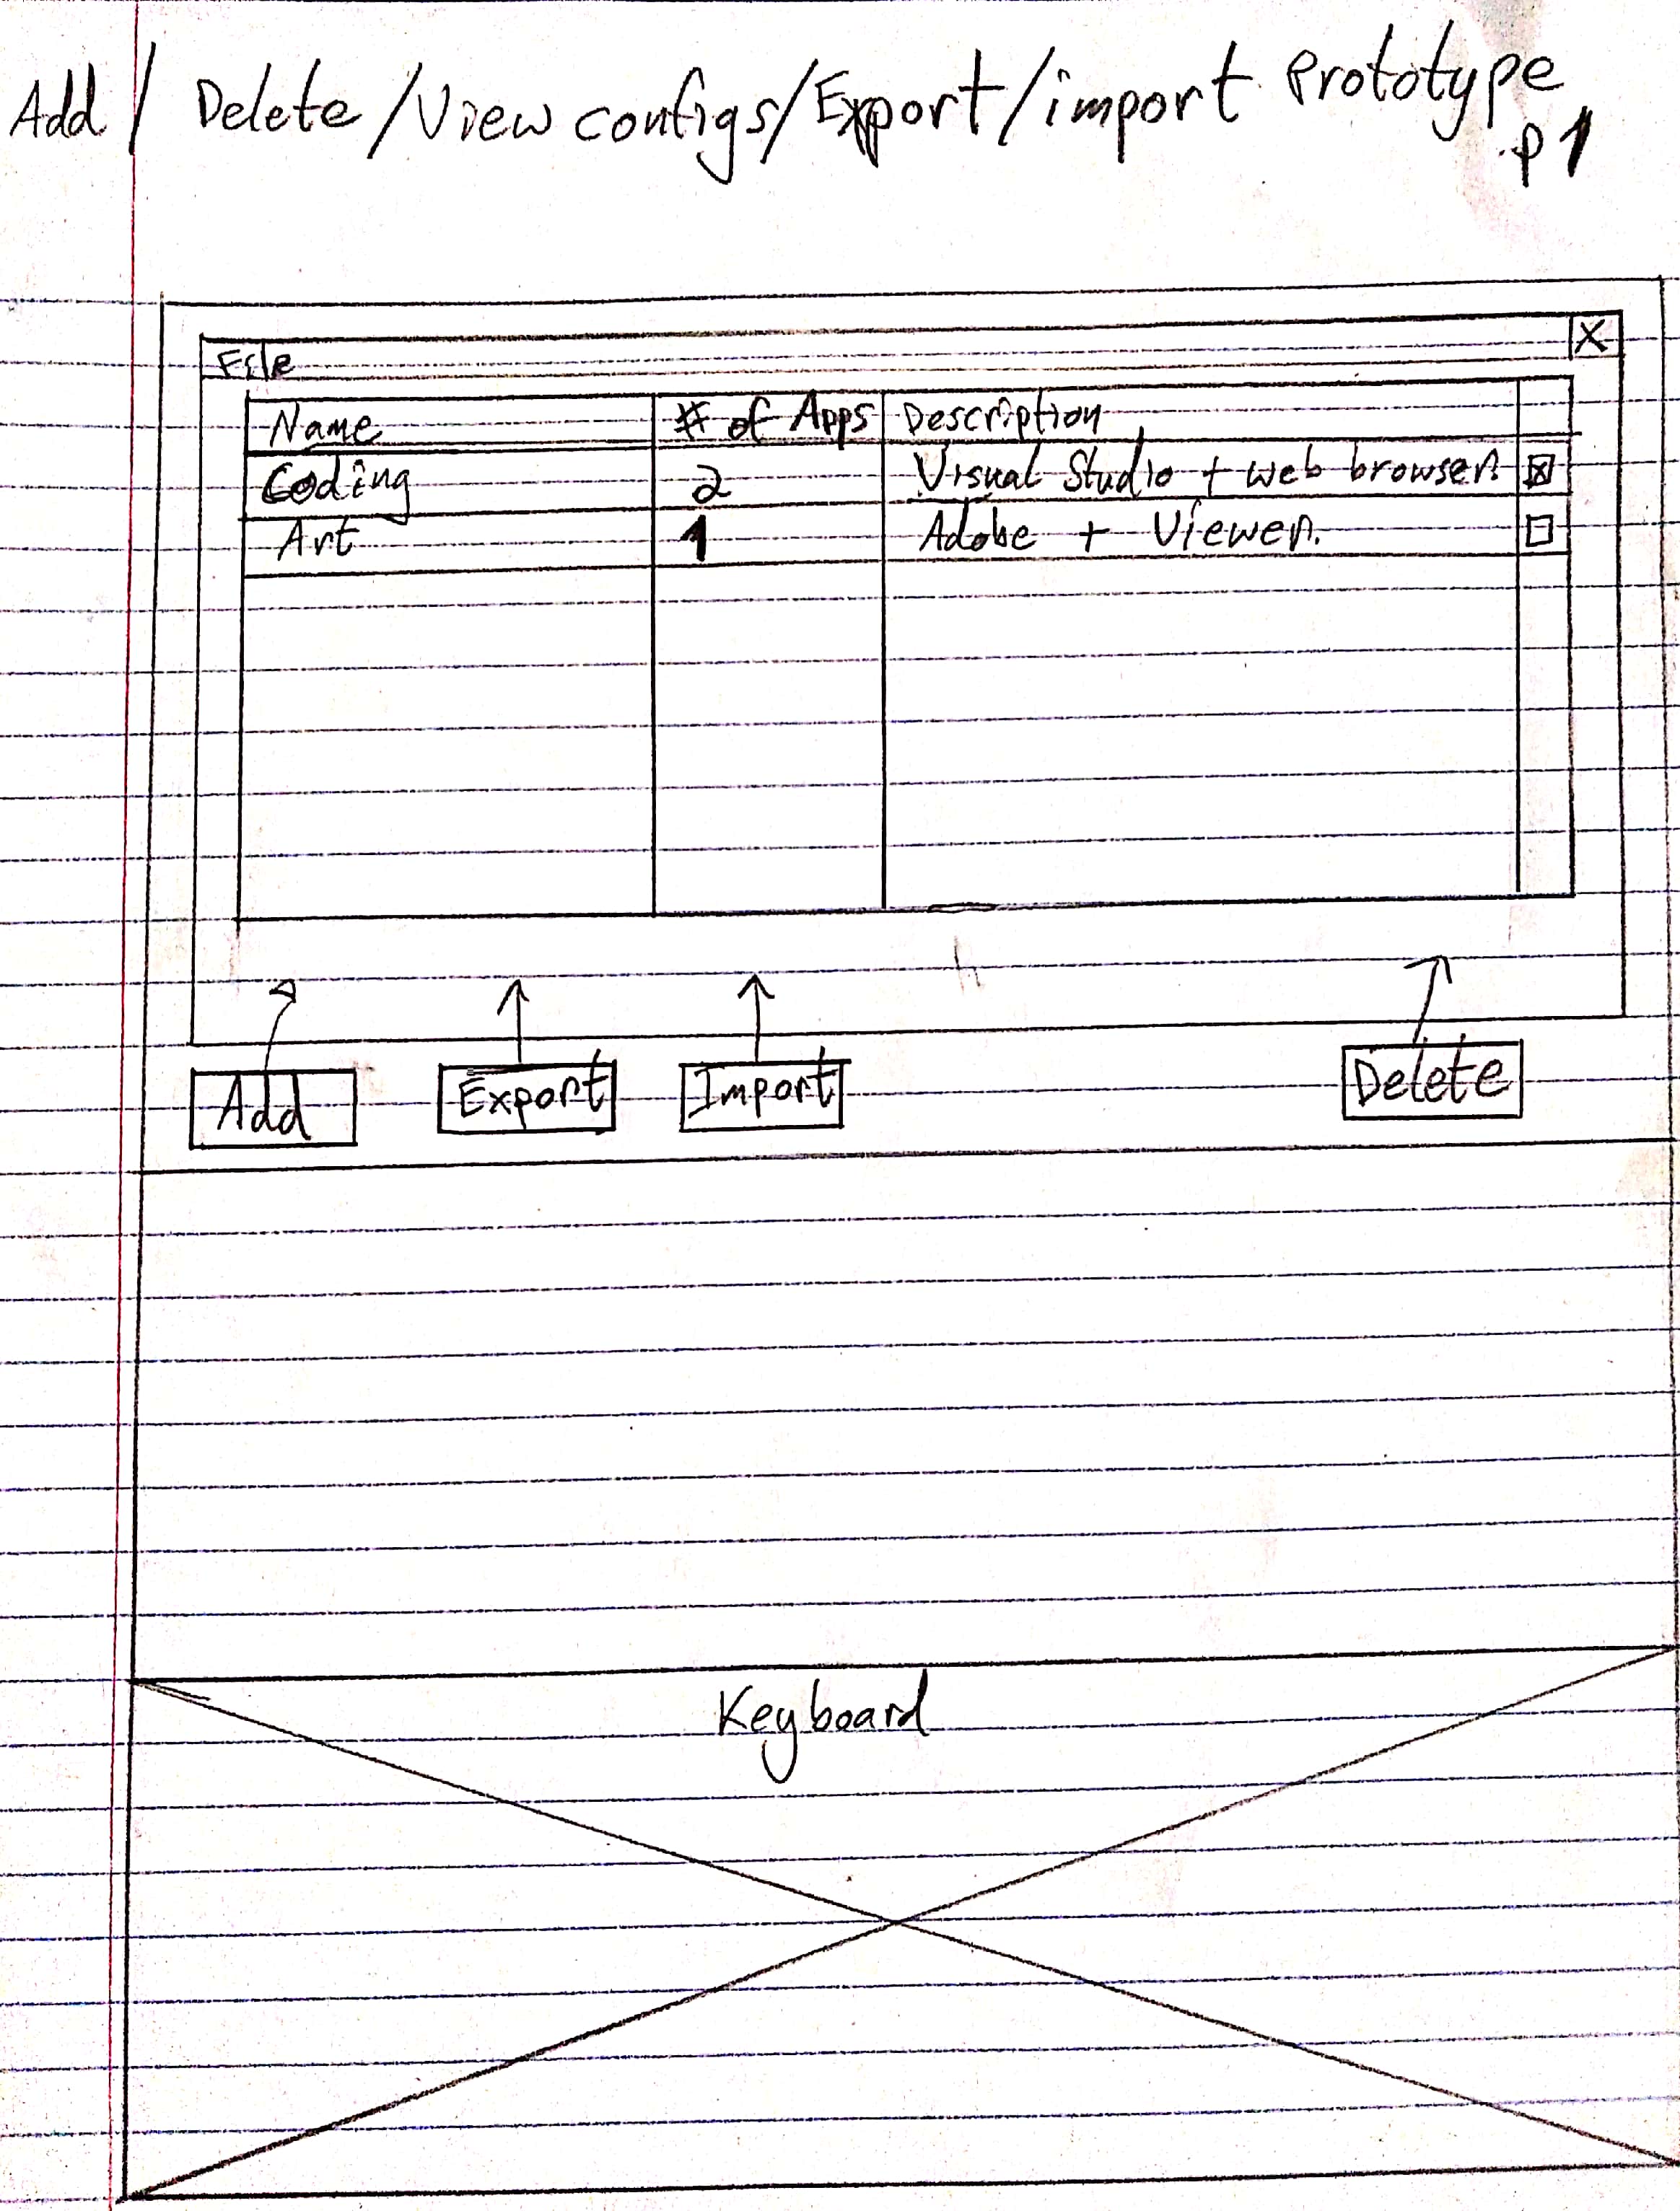 Add / Delete / View configs / Export / import Prototype
p1
X
File
Name # of Apps Description
Coding 2 Visual Studio + web browser.
Art 1 Adobe + Viewer.
Add Export Import Delete
Keyboard